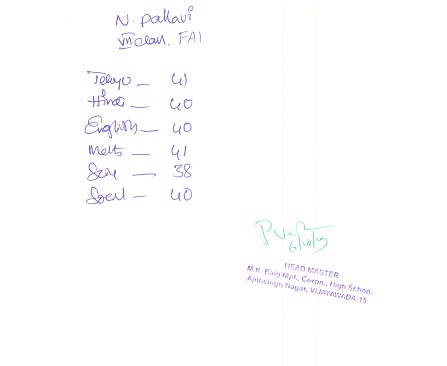 N. Pallavi
VII class. FA1
Telugu — 41
Hindi — 40
English — 40
Maths — 41
Scie — 38
Socal — 40
6/10/
HEAD MASTER
M.K. Baig Mpl., Corpn., High School,
Ajithsingh Nagar, VIJAYAWADA-15.